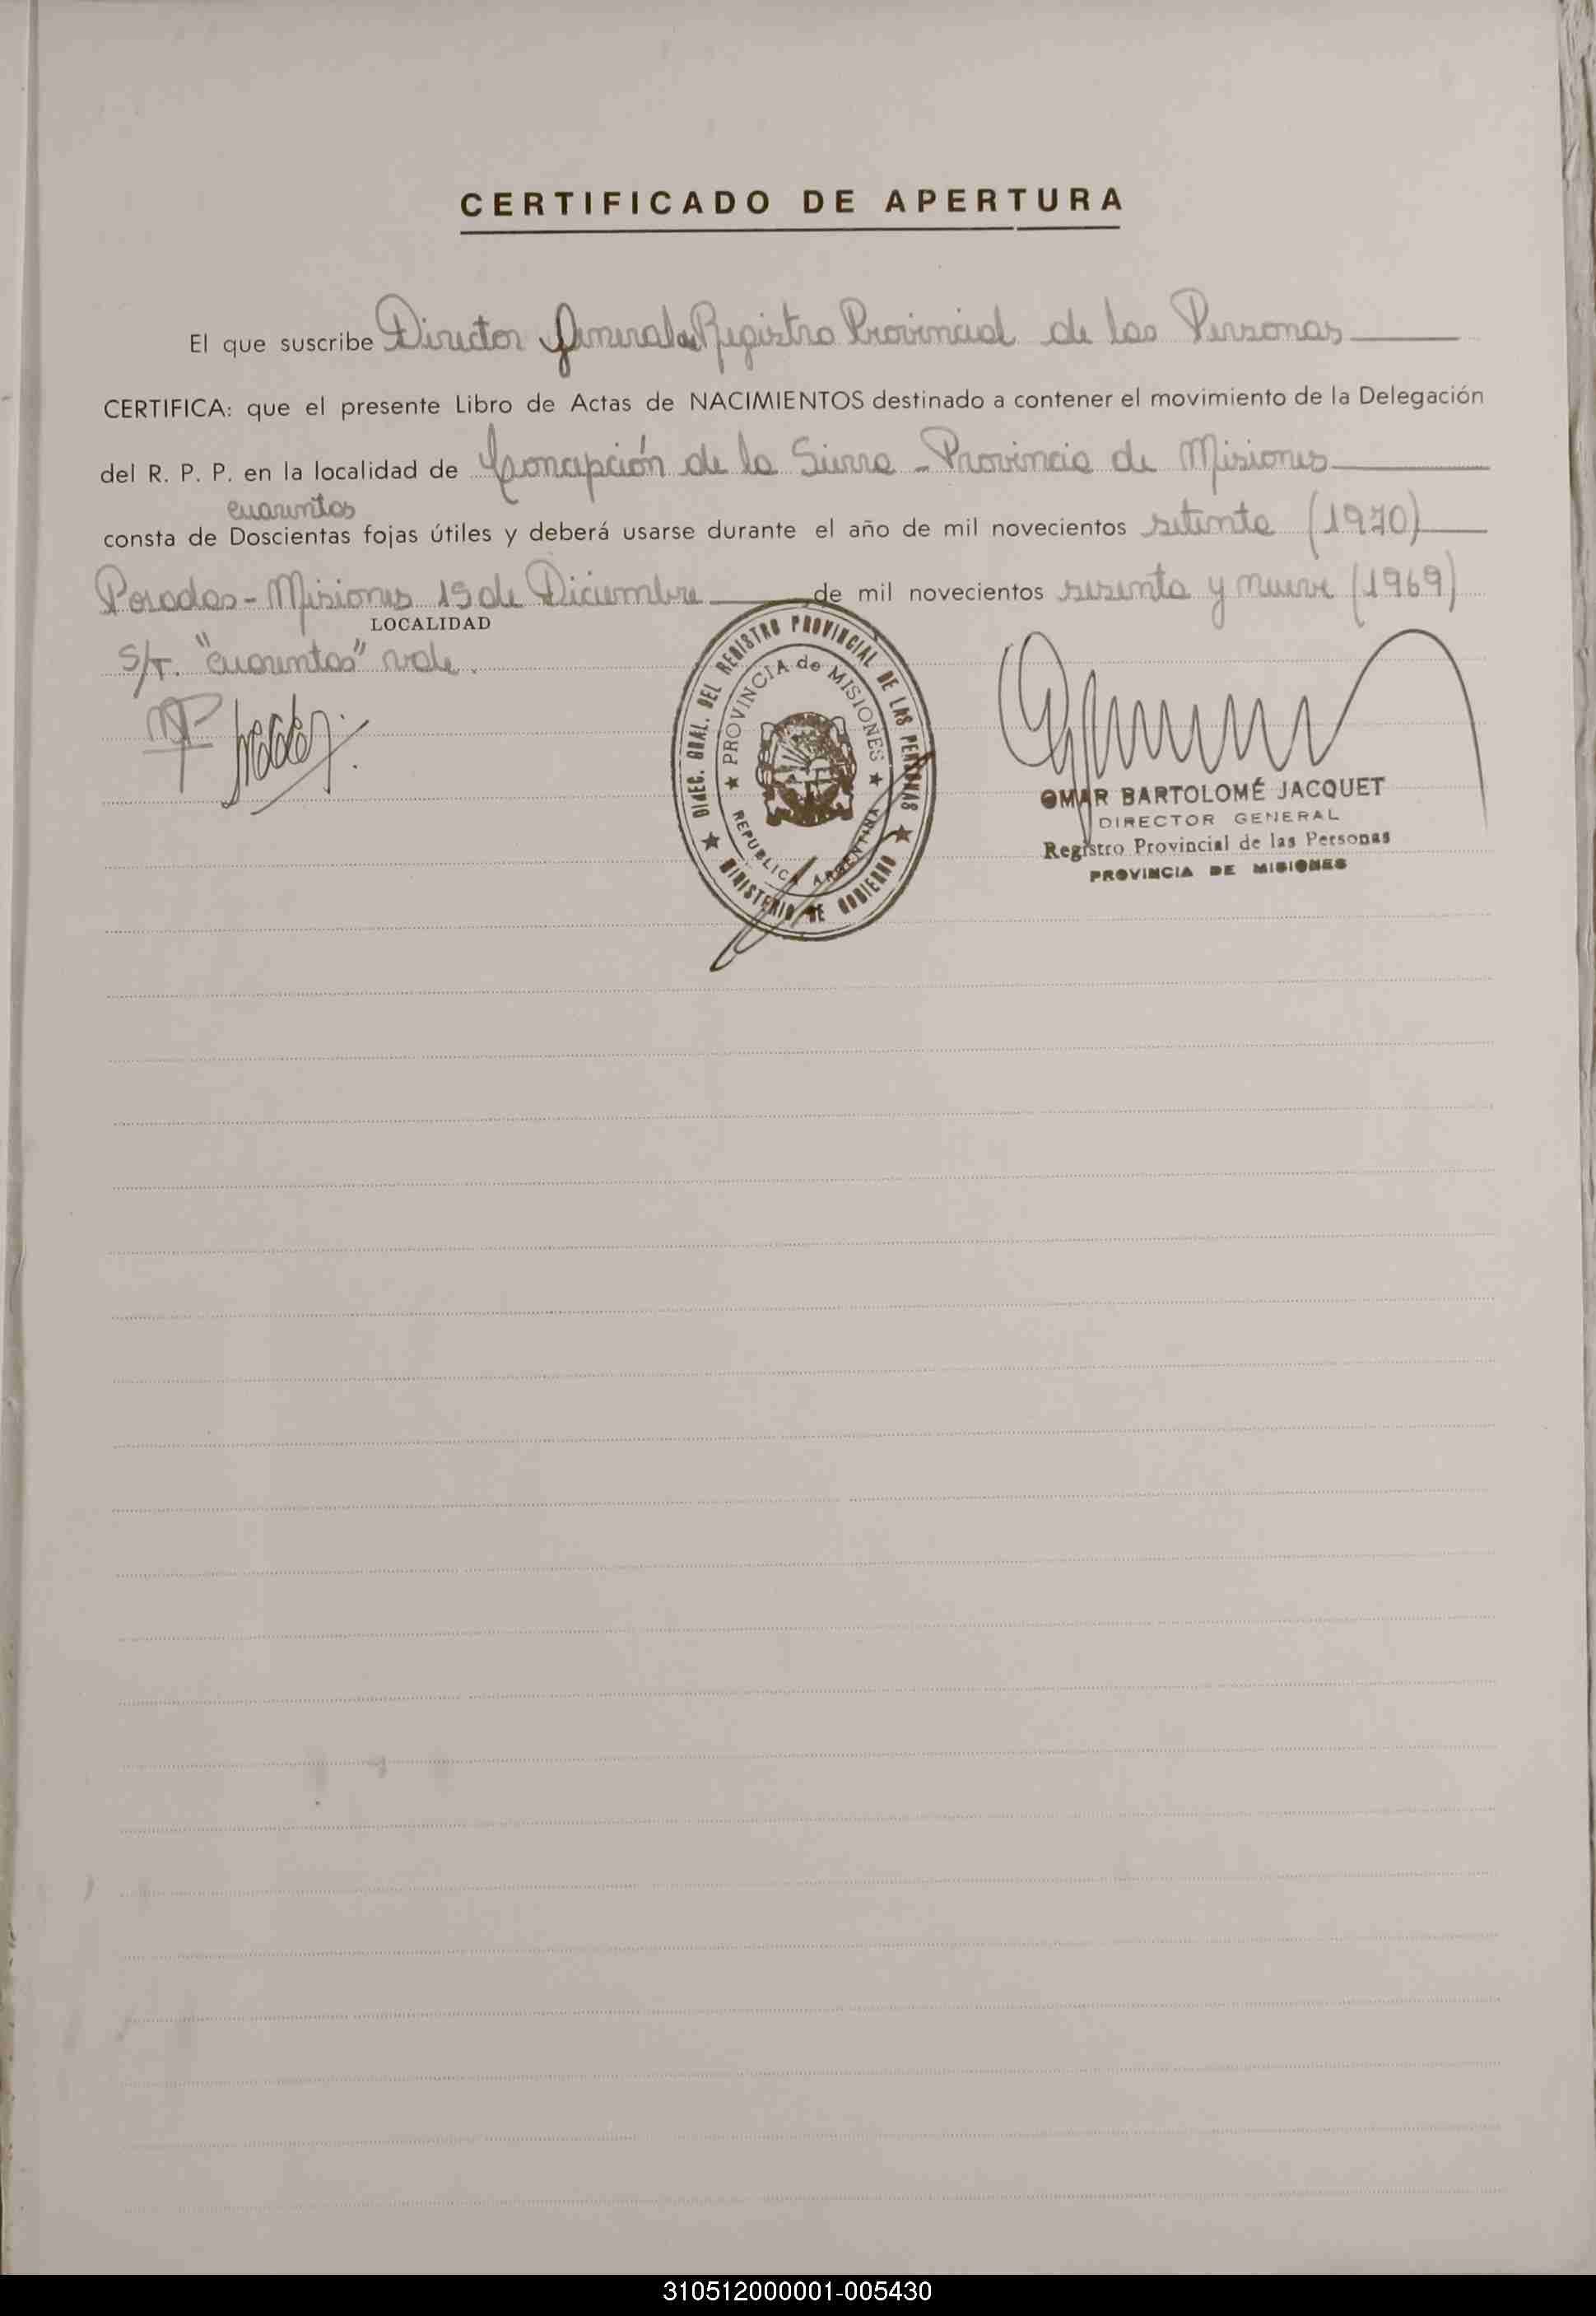 CERTIFICADO DE APERTURA
El que suscribe Director General del Registro Provincial de las Personas
CERTIFICA: que el presente Libro de Actas de NACIMIENTOS destinado a contener el movimiento de la Delegación
del R. P. P. en la localidad de Concepción de la Sierra - Provincia de Misiones
cuarentos
consta de Doscientas fojas útiles y deberá usarse durante el año de mil novecientos setenta (1970)
Posadas - Misiones 15 de Diciembre de mil novecientos sesenta y nueve (1969)
LOCALIDAD
S/T. "cuarentos" vale.
DIREC. GRAL. DEL REGISTRO PROVINCIAL DE LAS PERSONAS
PROVINCIA de MISIONES
REPUBLICA ARGENTINA
MINISTERIO DE GOBIERNO
OMAR BARTOLOMÉ JACQUET
DIRECTOR GENERAL
Registro Provincial de las Personas
PROVINCIA DE MISIONES
310512000001-005430